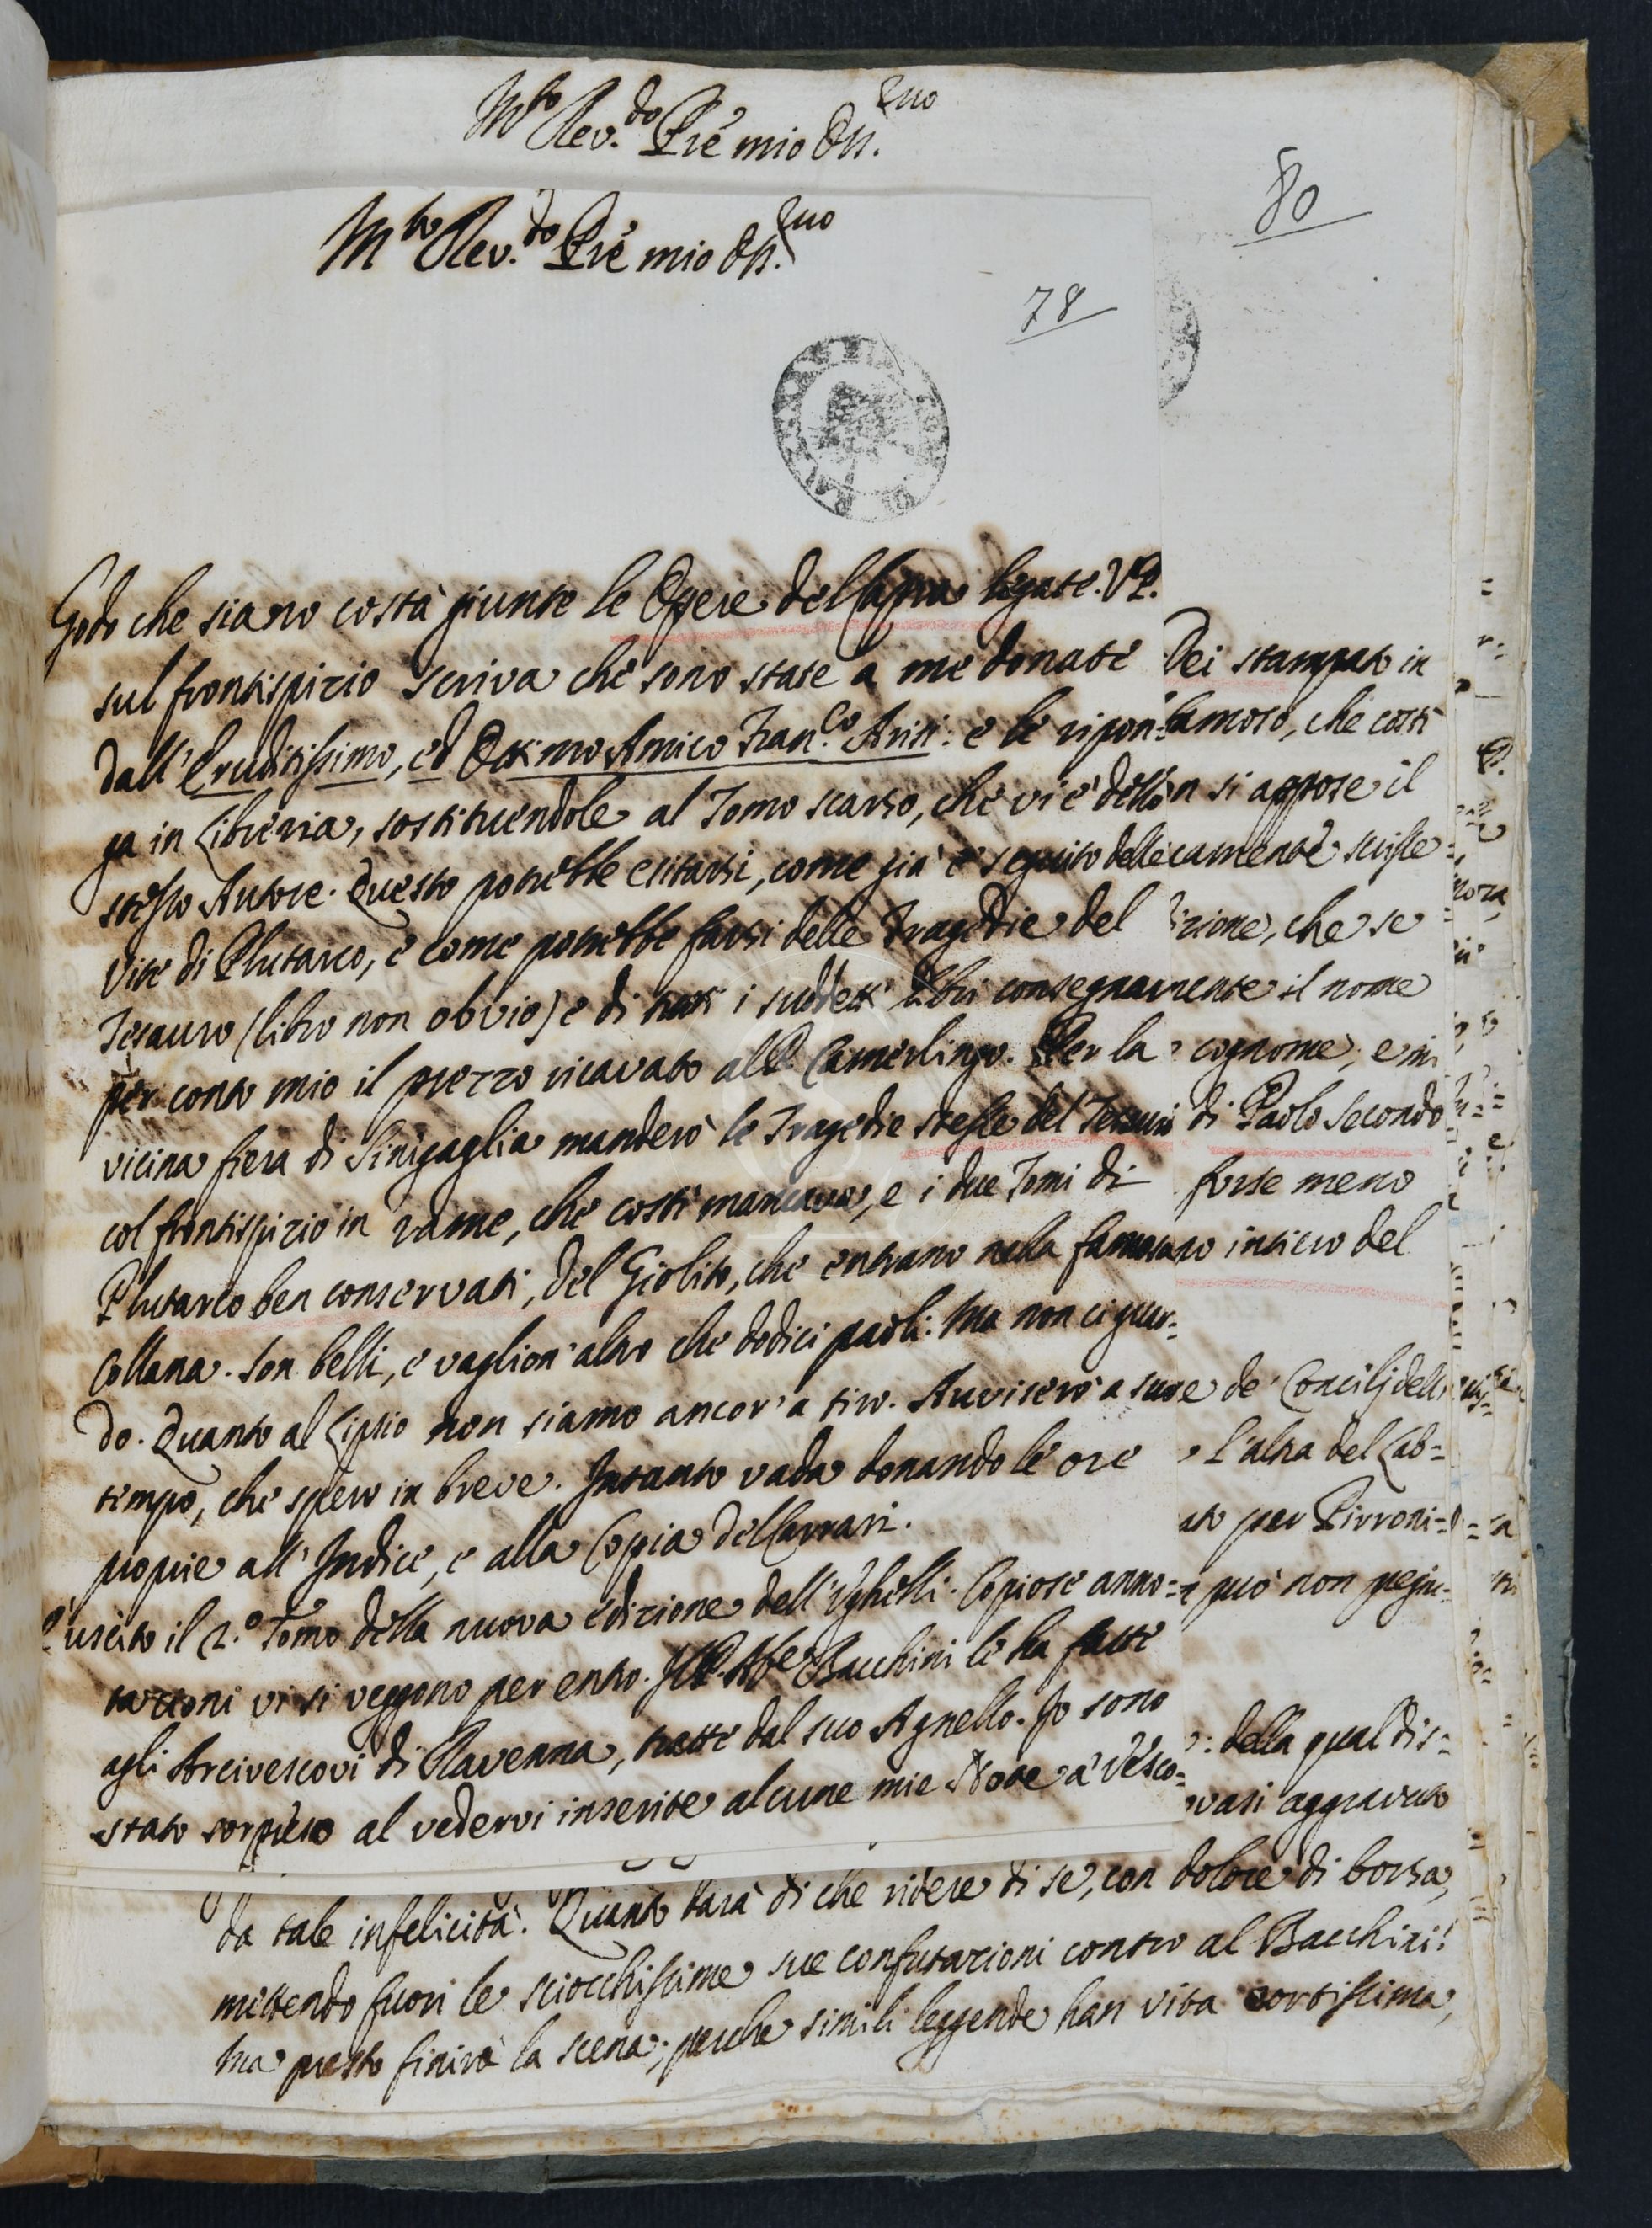 M.to Rev.do Pre mio Oss.mo
80
M.to Rev.do Pre mio Oss.mo
78
Godo che siano costà giunte le Opere del Capra legate. V.P.
sul frontispizio scriva che sono state a me donate
dall'Eruditissimo, ed Ottimo Amico Fran.co Arisi: e le ripon=
ga in Libreria, sostituendole al Tomo scarso, che vi è dello
stesso Autore. Questo potrebbe esitarsi, come già è seguito delle
Vite di Plutarco, e come potrebbe farsi delle Tragedie del
Tesauro (libro non obvio) e di tutti i suddetti libri consegnar
per conto mio il prezzo ricavato al P. Camerlingo. Per la
vicina fiera di Sinigaglia manderò le Tragedie stesse del Tesauro
col frontispizio in rame, che costì mancava, e i due Tomi di
Plutarco ben conservati, del Giolito, che entrano nella famosa
Collana. Son belli, e vaglion' altro che dodici paoli: Ma non ci guar=
do. Quanto al Lipsio non siamo ancor' a tiro. Avviserò a suo
tempo, che spero in breve. Intanto vada donando le ore
proprie all' Indice, e alla Copia del Carrari.
È uscito il 2.o Tomo della nuova edizione dell'Ughelli. Copiose anno=
tazioni vi si veggono per entro. Il P. Ab.e Bacchini le ha fatte
agli Arcivescovi di Ravenna, tratte dal suo Agnello. Io sono
stato sorpreso al vedervi inserite alcune mie Note a' Vesco=
Dei stampato in
famoso, che costì
n si appose il
camente scrisse
izione, che se
mente il nome
cognome; e in
di Paolo Secondo
forse meno
ro intiero del
e de' Concilj dell
l'altra del Lab=
ato per Pirroni=
può non pegiu=
: della qual dis=
ovasi aggravato
da tale infelicità. Quanto darà di che ridere di se, con dolore di borsa,
mettendo fuori le sciocchissime sue confutazioni contro al Bacchini!
Ma presto finirà la scena; perche simili leggende han vita cortissima,